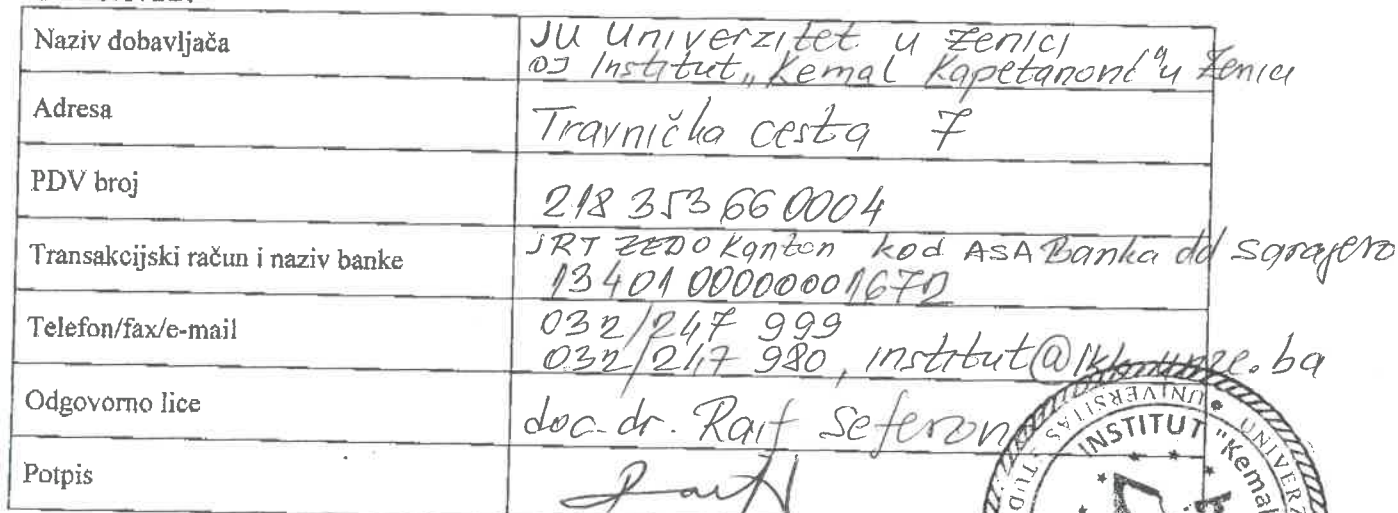 Naziv dobavljača
JU Univerzitet u Zenici
OJ Institut „Kemal Kapetanović“ u Zenici
Adresa
Travnička cesta 7
PDV broj
218 353 66 0004
Transakcijski račun i naziv banke
JRT ZEDO Kanton kod ASA Banka dd Sarajevo
13401 00000001672
Telefon/fax/e-mail
032/247 999
032/247 980, institut@ikk.unze.ba
Odgovorno lice
doc. dr. Raif Seferović
Potpis
UNIVERSITAS STUD
UNIVERZ
INSTITUT "Kemal